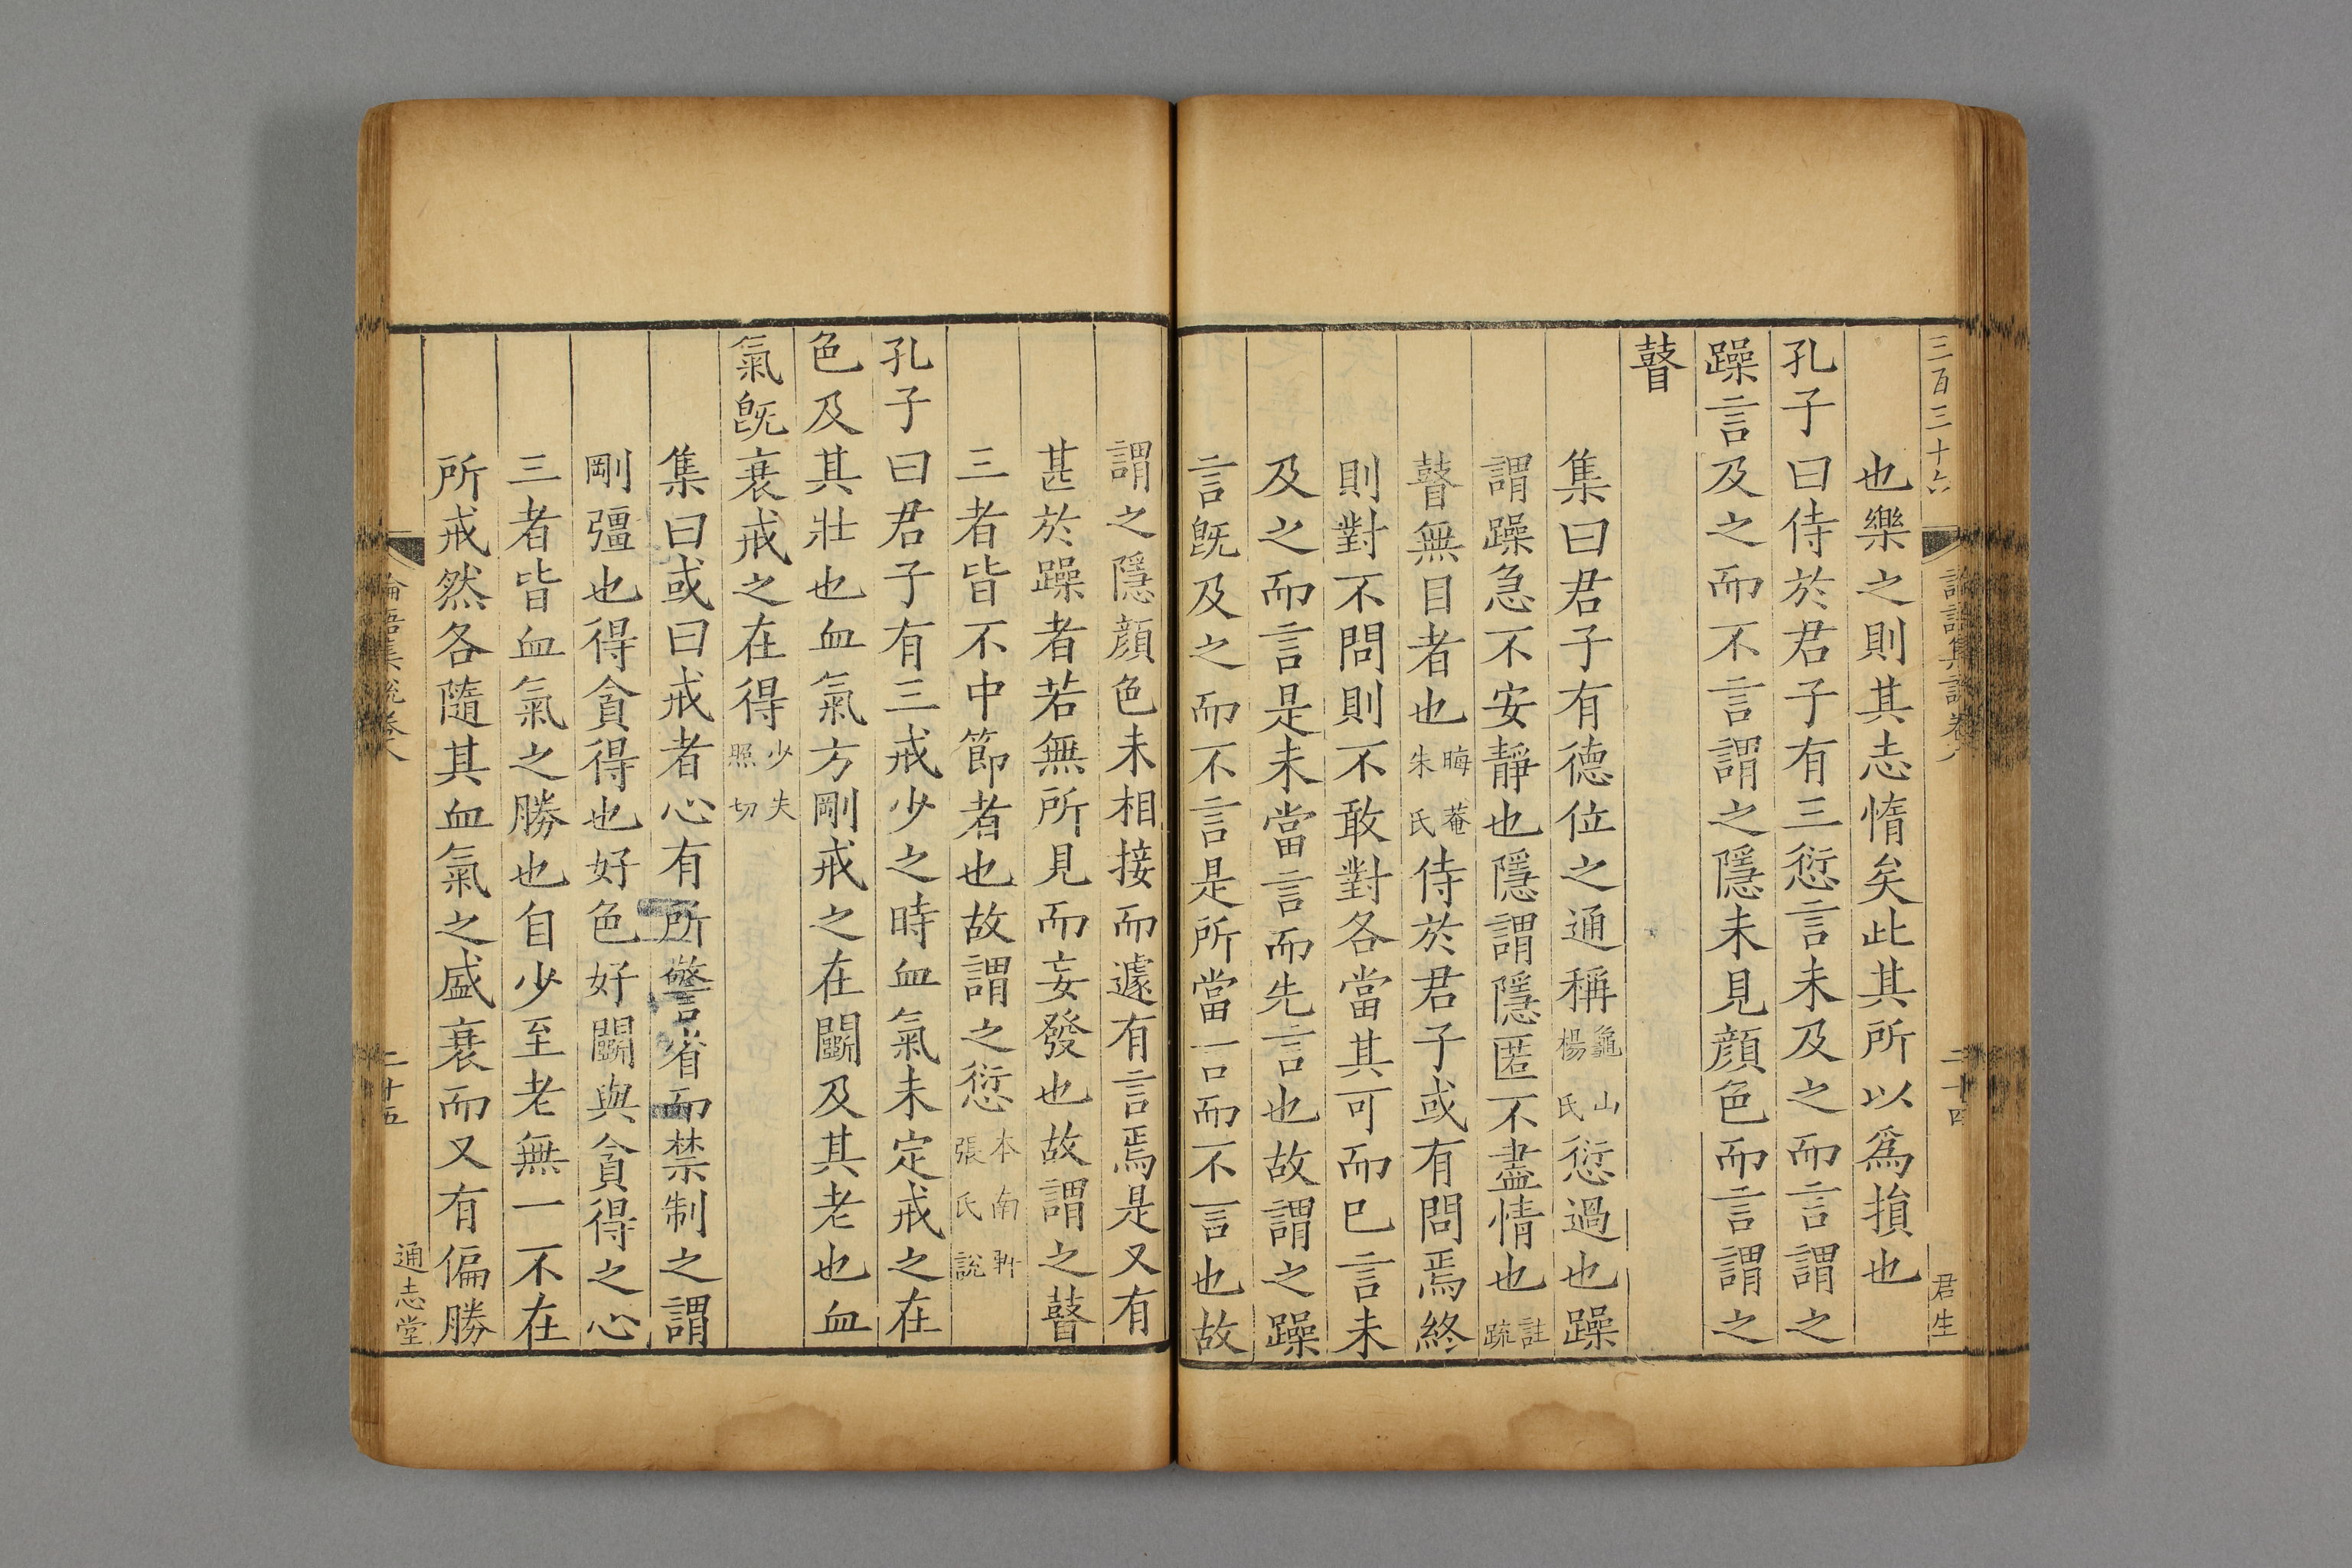 三百三十六
論語集說卷八
二十四
君生
也樂之則其志惰矣此其所以爲損也
孔子曰侍於君子有三愆言未及之而言謂之
躁言及之而不言謂之隱未見顔色而言謂之
瞽
集曰君子有德位之通稱龜山楊氏愆過也躁
謂躁急不安靜也隱謂隱匿不盡情也註疏
瞽無目者也晦菴朱氏侍於君子或有問焉終
則對不問則不敢對各當其可而巳言未
及之而言是未當言而先言也故謂之躁
言旣及之而不言是所當言而不言也故
謂之隱顔色未相接而遽有言焉是又有
甚於躁者若無所見而妄發也故謂之瞽
三者皆不中節者也故謂之愆本南軒張氏說
孔子曰君子有三戒少之時血氣未定戒之在
色及其壯也血氣方剛戒之在鬭及其老也血
氣旣衰戒之在得少失照切
集曰或曰戒者心有所警省而禁制之謂
剛彊也得貪得也好色好鬭與貪得之心
三者皆血氣之勝也自少至老無一不在
所戒然各隨其血氣之盛衰而又有偏勝
論語集說卷八
二十五
通志堂